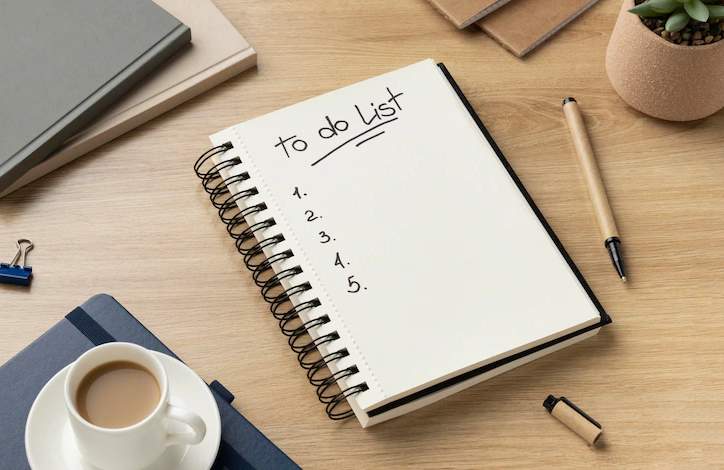 to do List
1.
2.
3.
4.
5.